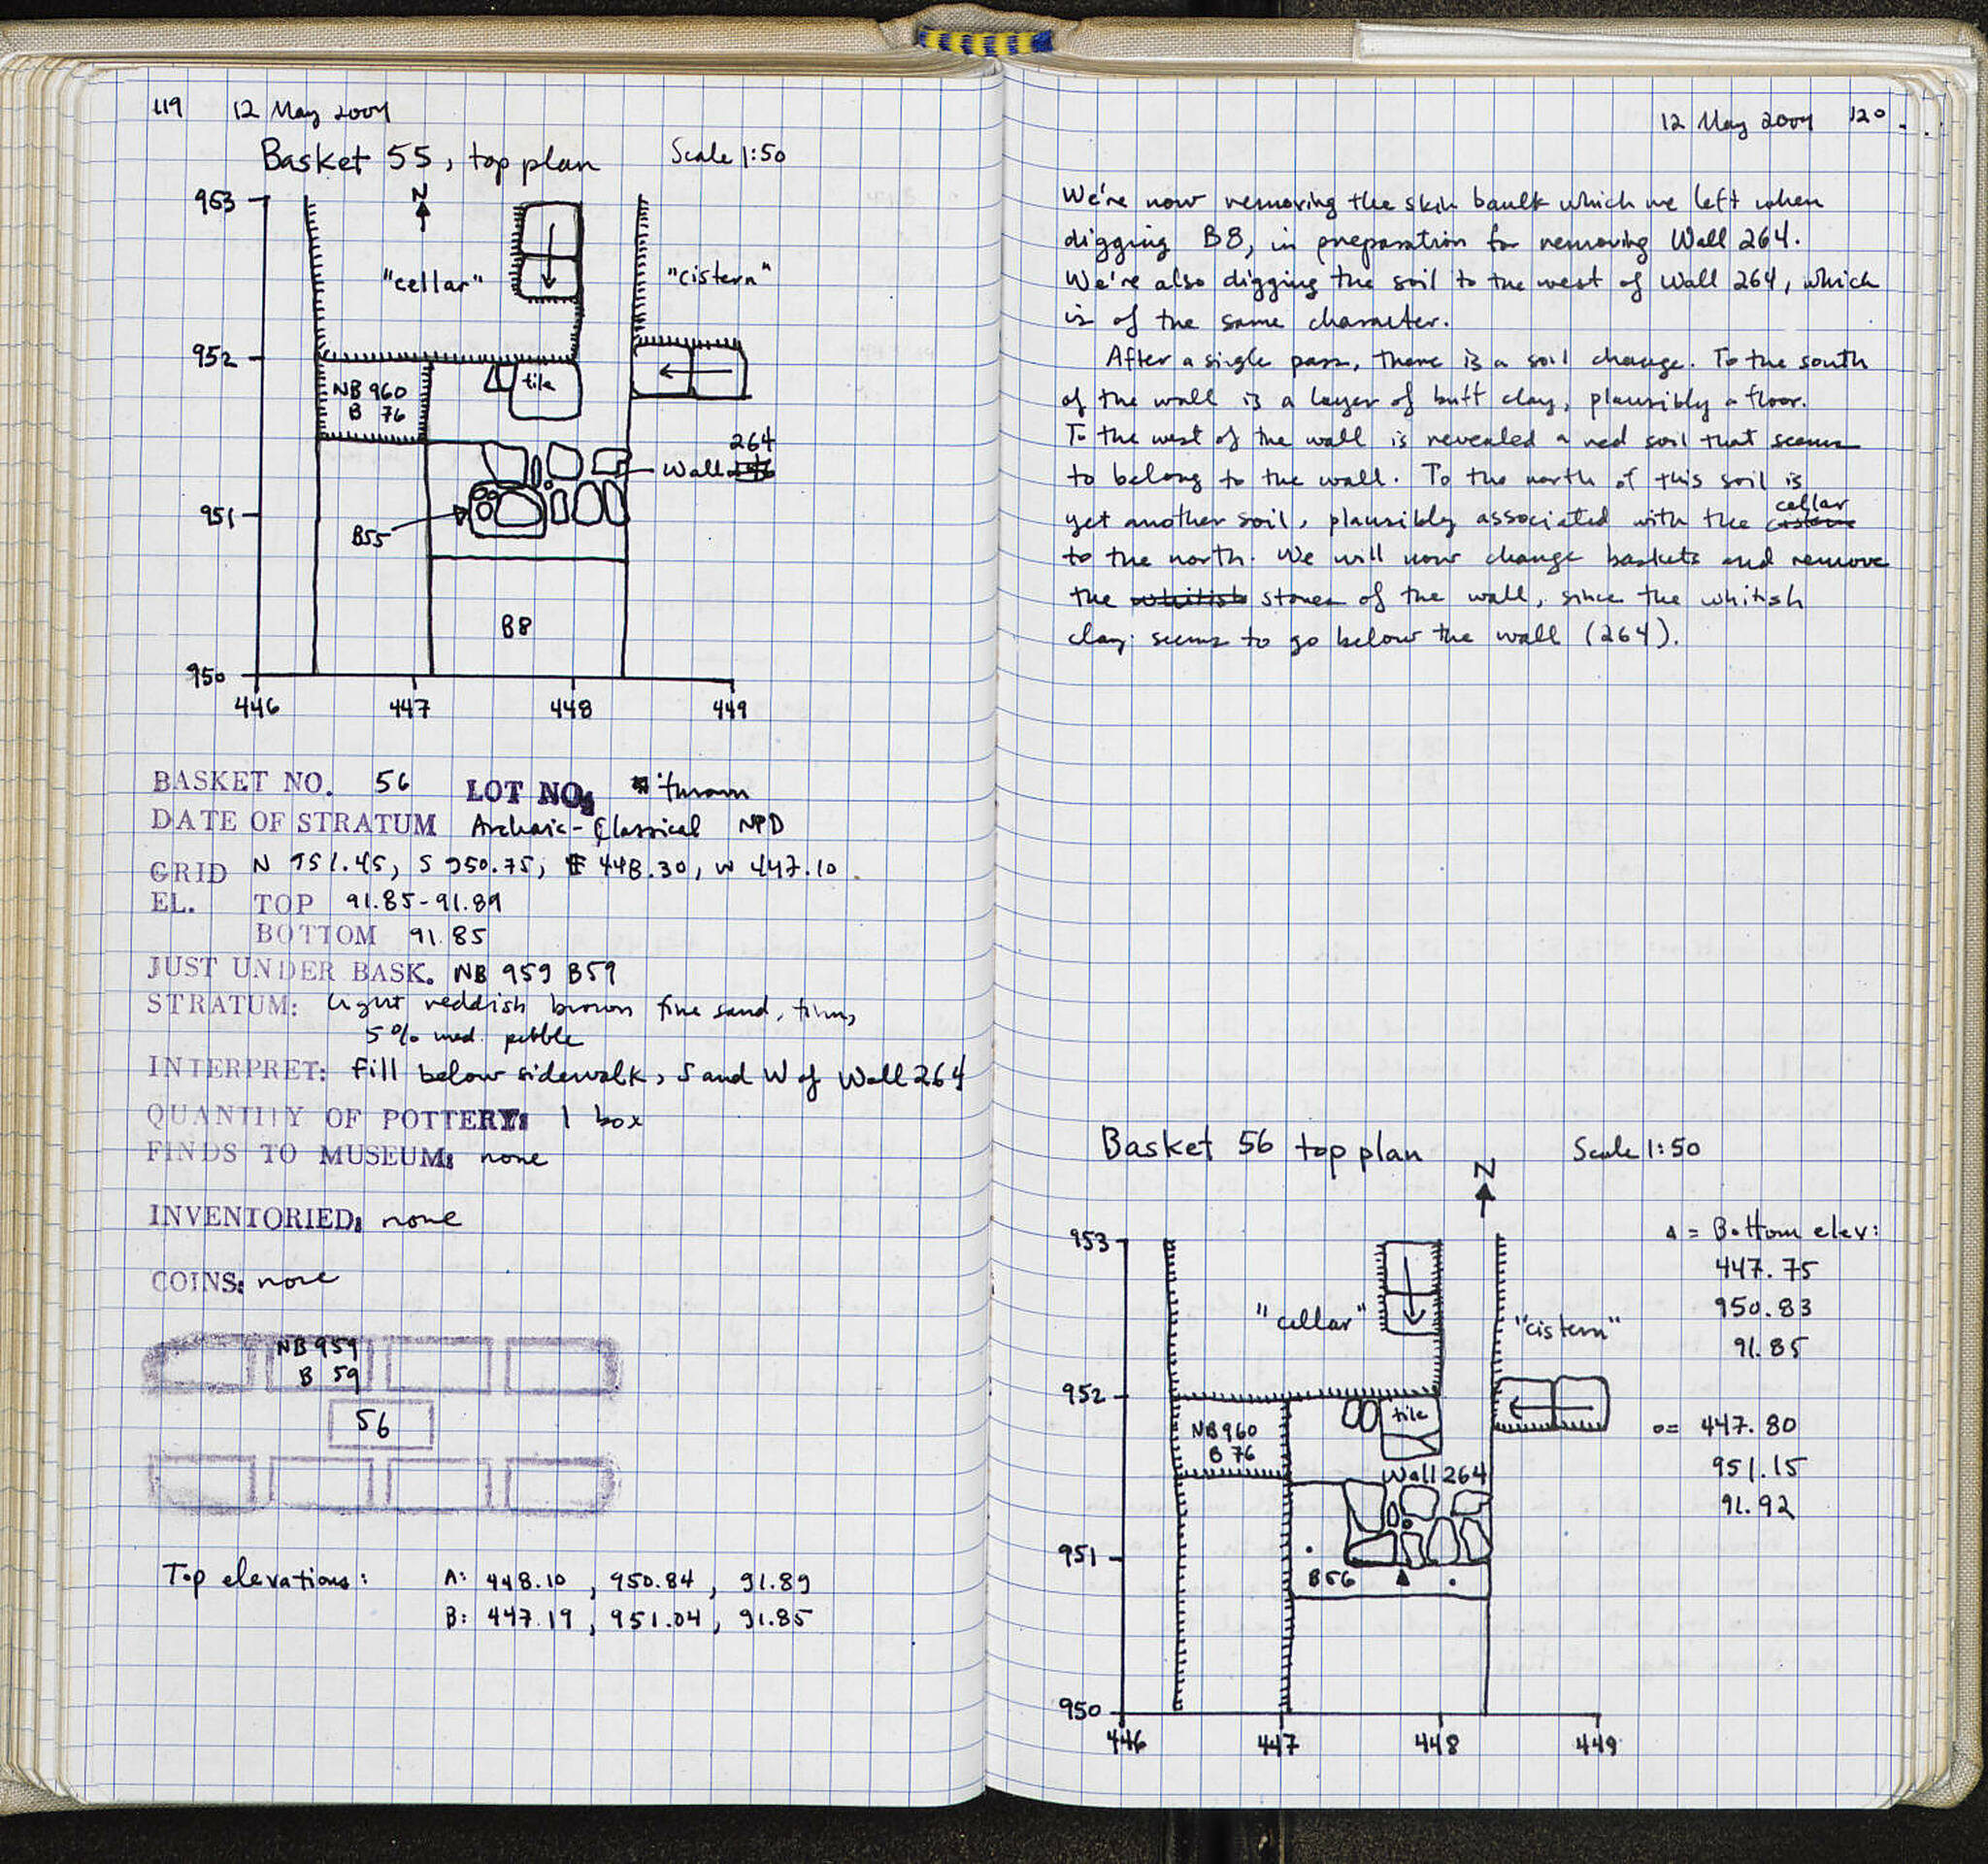 119 12 May 2004
Basket 55, top plan Scale 1:50
953
N
"cellar"
"cistern"
952
NB 960
B 76
tile
264
Wall
951
B55
B8
950
446 447 448 449
BASKET NO. 56 LOT NO. thrown
DATE OF STRATUM Archaic-Classical NPD
GRID N 951.45, S 950.75, E 448.30, W 447.10
EL. TOP 91.85-91.89
BOTTOM 91.85
JUST UNDER BASK. NB 959 B59
STRATUM: Light reddish brown fine sand, firm,
5% med. pebble
INTERPRET: fill below sidewalk, S and W of Wall 264
QUANTITY OF POTTERY: 1 box
FINDS TO MUSEUM: none
INVENTORIED: none
COINS: none
NB 959
B 59
56
Top elevations: A: 448.10, 950.84, 91.89
B: 447.19, 951.04, 91.85
12 May 2004 120
We're now removing the skin baulk which we left when
digging B8, in preparation for removing Wall 264.
We're also digging the soil to the west of Wall 264, which
is of the same character.
After a single pass, there is a soil change. To the south
of the wall is a layer of buff clay, plausibly a floor.
To the west of the wall is revealed a red soil that seems
to belong to the wall. To the north of this soil is
yet another soil, plausibly associated with the cistern cellar
to the north. We will now change baskets and remove
the whitish stones of the wall, since the whitish
clay seems to go below the wall (264).
Basket 56 top plan Scale 1:50
N
953
"cellar"
"cistern"
952
NB 960
B 76
tile
Wall 264
951
B56
950
446 447 448 449
▵ = Bottom elev:
447.75
950.83
91.85
o= 447.80
951.15
91.92